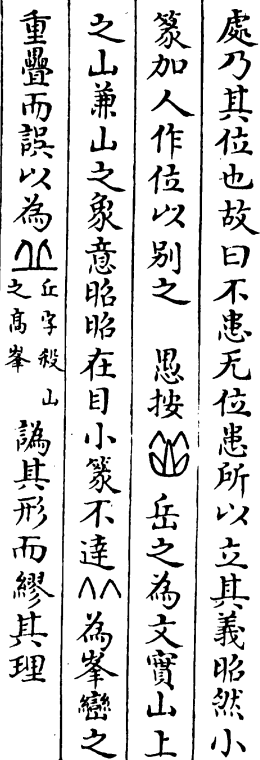 處乃其位也故曰不患无位患所以立其義昭然小
篆加人作位以别之　愚按岳之為文實山上
之山兼山之象意昭昭在目小篆不達為峯巒之
重疊而誤以為丘字殺山之高峯譌其形而繆其理